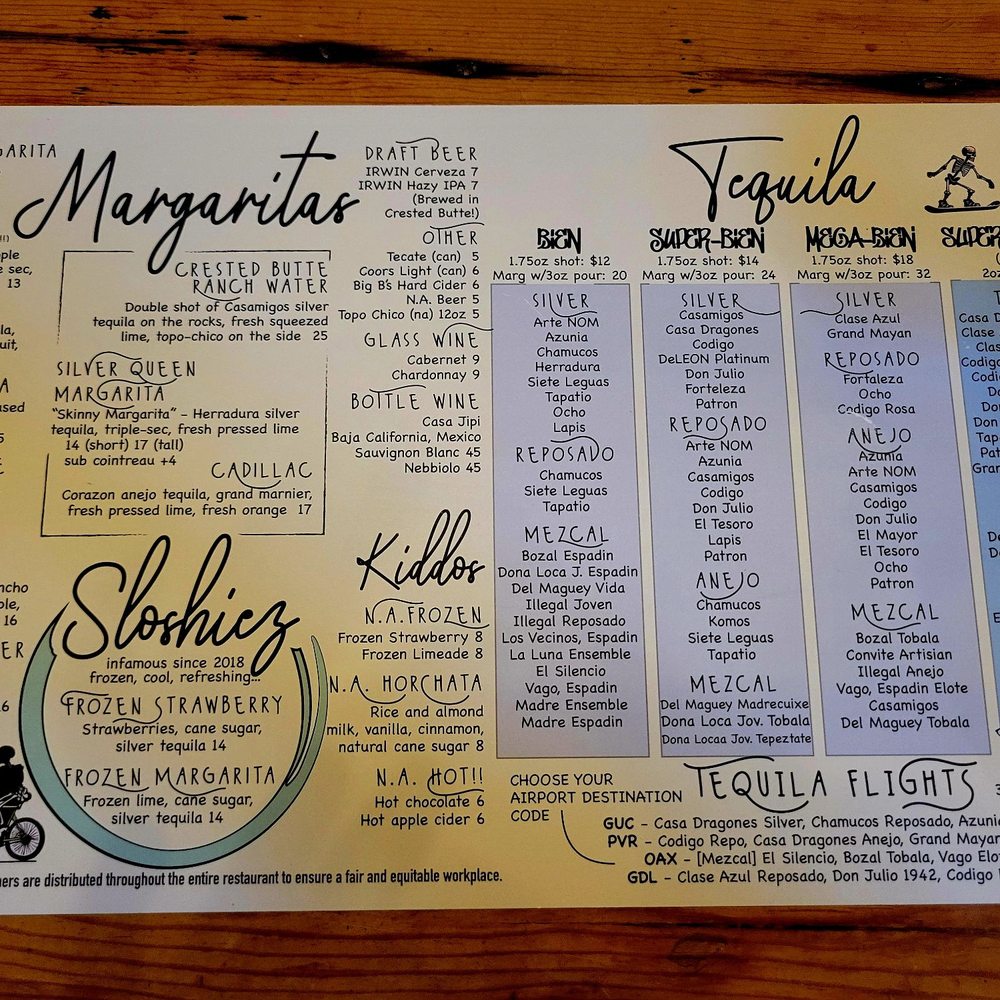 ARITA
ple
e sec,
13
la,
uit,
A
used
5
ncho
ple,
16
ER
16
Margaritas
CRESTED BUTTE
RANCH WATER
Double shot of Casamigos silver
tequila on the rocks, fresh squeezed
lime, topo-chico on the side 25
SILVER QUEEN
MARGARITA
"Skinny Margarita" – Herradura silver
tequila, triple-sec, fresh pressed lime
14 (short) 17 (tall)
sub cointreau +4
CADILLAC
Corazon anejo tequila, grand marnier,
fresh pressed lime, fresh orange 17
Sloshiez
infamous since 2018
frozen, cool, refreshing...
FROZEN STRAWBERRY
Strawberries, cane sugar,
silver tequila 14
FROZEN MARGARITA
Frozen lime, cane sugar,
silver tequila 14
DRAFT BEER
IRWIN Cerveza 7
IRWIN Hazy IPA 7
(Brewed in
Crested Butte!)
OTHER
Tecate (can) 5
Coors Light (can) 6
Big B's Hard Cider 6
N.A. Beer 5
Topo Chico (na) 12oz 5
GLASS WINE
Cabernet 9
Chardonnay 9
BOTTLE WINE
Casa Jipi
Baja California, Mexico
Sauvignon Blanc 45
Nebbiolo 45
Kiddos
N.A.FROZEN
Frozen Strawberry 8
Frozen Limeade 8
N.A. HORCHATA
Rice and almond
milk, vanilla, cinnamon,
natural cane sugar 8
N.A. HOT!!
Hot chocolate 6
Hot apple cider 6
ners are distributed throughout the entire restaurant to ensure a fair and equitable workplace.
Tequila
BIEN
1.75oz shot: $12
Marg w/3oz pour: 20
SILVER
Arte NOM
Azunia
Chamucos
Herradura
Siete Leguas
Tapatio
Ocho
Lapis
REPOSADO
Chamucos
Siete Leguas
Tapatio
MEZCAL
Bozal Espadin
Dona Loca J. Espadin
Del Maguey Vida
Illegal Joven
Illegal Reposado
Los Vecinos, Espadin
La Luna Ensemble
El Silencio
Vago, Espadin
Madre Ensemble
Madre Espadin
SUPER-BIEN
1.75oz shot: $14
Marg w/3oz pour: 24
SILVER
Casamigos
Casa Dragones
Codigo
DeLEON Platinum
Don Julio
Forteleza
Patron
REPOSADO
Arte NOM
Azunia
Casamigos
Codigo
Don Julio
El Tesoro
Lapis
Patron
ANEJO
Chamucos
Komos
Siete Leguas
Tapatio
MEZCAL
Del Maguey Madrecuixe
Dona Loca Jov. Tobala
Dona Locaa Jov. Tepeztate
MEGA-BIEN
1.75oz shot: $18
Marg w/3oz pour: 32
SILVER
Clase Azul
Grand Mayan
REPOSADO
Fortaleza
Ocho
Codigo Rosa
ANEJO
Azunia
Arte NOM
Casamigos
Codigo
Don Julio
El Mayor
El Tesoro
Ocho
Patron
MEZCAL
Bozal Tobala
Convite Artisian
Illegal Anejo
Vago, Espadin Elote
Casamigos
Del Maguey Tobala
SUPER
2oz
Casa D
Clase
Clas
Codigo
Codi
Do
Don
Tap
Pat
Gran
De
Do
E
CHOOSE YOUR
AIRPORT DESTINATION
CODE
TEQUILA FLIGHTS
3
GUC – Casa Dragones Silver, Chamucos Reposado, Azunia
PVR – Codigo Repo, Casa Dragones Anejo, Grand Mayan
OAX – [Mezcal] El Silencio, Bozal Tobala, Vago Elo
GDL – Clase Azul Reposado, Don Julio 1942, Codigo